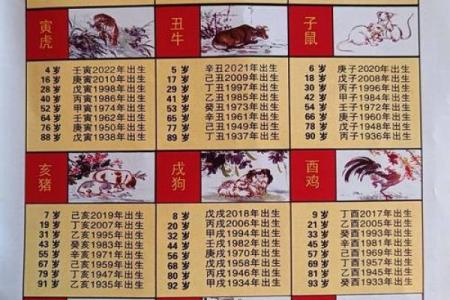 寅虎
4岁 壬寅2022年出生
16岁 庚寅2010年出生
28岁 戊寅1998年出生
40岁 丙寅1986年出生
52岁 甲寅1974年出生
64岁 壬寅1962年出生
76岁 庚寅1950年出生
88岁 戊寅1938年出生
丑牛
5岁 辛丑2021年出生
17岁 己丑2009年出生
29岁 丁丑1997年出生
41岁 乙丑1985年出生
53岁 癸丑1973年出生
65岁 辛丑1961年出生
77岁 己丑1949年出生
89岁 丁丑1937年出生
子鼠
6岁 庚子2020年出生
18岁 戊子2008年出生
30岁 丙子1996年出生
42岁 甲子1984年出生
54岁 壬子1972年出生
66岁 庚子1960年出生
78岁 戊子1948年出生
90岁 丙子1936年出生
亥猪
7岁 己亥2019年出生
19岁 丁亥2007年出生
31岁 乙亥1995年出生
43岁 癸亥1983年出生
55岁 辛亥1971年出生
67岁 己亥1959年出生
79岁 丁亥1947年出生
91岁 乙亥1935年出生
戌狗
8岁 戊戌2018年出生
20岁 丙戌2006年出生
32岁 甲戌1994年出生
44岁 壬戌1982年出生
56岁 庚戌1970年出生
68岁 戊戌1958年出生
80岁 丙戌1946年出生
92岁 甲戌1934年出生
酉鸡
9岁 丁酉2017年出生
21岁 乙酉2005年出生
33岁 癸酉1993年出生
45岁 辛酉1981年出生
57岁 己酉1969年出生
69岁 丁酉1957年出生
81岁 乙酉1945年出生
93岁 癸酉1933年出生